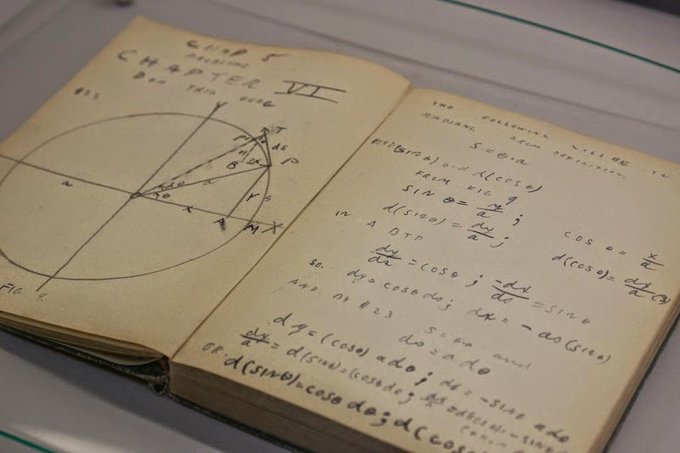 CHAP 5
CHAPTER VI
T
P
ds
B
dθ
θ
a
a
y
s
x
A
M
X
Y
FIG 9.
THE FOLLOWING WILL BE IN
RADIANS FROM DEFINITION
S = θ·a
d(sin θ) and d(cos θ)
FROM FIG 9
SIN θ = y/a ; COS θ = x/a
d(sin θ) = dy/a ; d(cos θ) = dx/a
IN A BTP
dy/ds = cos θ ; -dx/ds = sin θ
SO. dy = cos θ ds ; dx = - ds (sin θ)
AND BY #23 S = θa and
ds = a dθ
dy = (cos θ) a dθ ; dx = - sin θ a dθ
dy/a = d(sin θ) = cos θ dθ ;
OR d(sin θ) = cos θ dθ ; d(cos